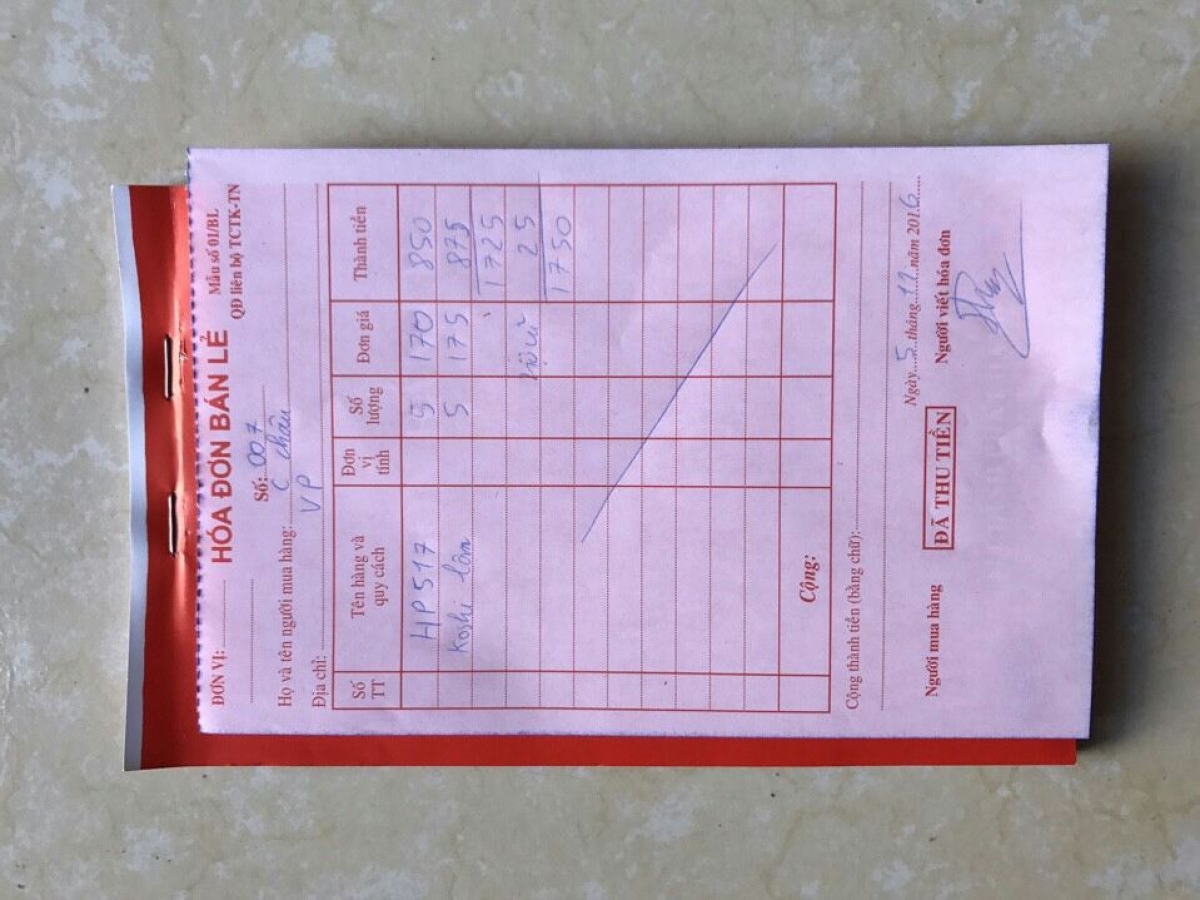 ĐƠN VỊ: HÓA ĐƠN BÁN LẺ Mẫu số 01/BL
QĐ liên bộ TCTK-TN
Số: 007
Họ và tên người mua hàng: C Châu
Địa chỉ: VP
Số TT Tên hàng và quy cách Đơn vị tính Số lượng Đơn giá Thành tiền
HP517 5 170 850
Koshi lôm 5 175 875
1725
25
1750
Cộng:
Cộng thành tiền (bằng chữ):
Ngày 5 tháng 12 năm 2016
Người mua hàng ĐÃ THU TIỀN Người viết hóa đơn